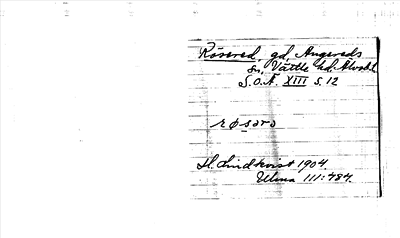 Rösered, gd, Angereds
sn, Vättle hd. Älvsb.l.
S.O.Ä. XIII s. 12
røsərə
H. Lindkvist 1904.
Ulma 111:484.